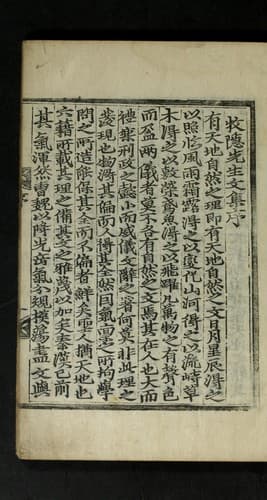 牧隱先生文集序
有天地自然之理即有天地自然之文日月星辰得之
以照臨風雨霜露得之以變化山河得之以流峙草
木得之以敷榮魚鳶得之以飛躍凡萬物之有聲色
而盈兩儀者莫不各有自然之文焉其在人也大而
禮樂刑政之懿小而威儀文辭之著何莫非此理之
發現也物得其偏而人得其全然因氣稟之所拘學
問之所造能保其全而不偏者鮮矣聖人猶天地也
六籍所載其理之備其文之雅蔑以加矣秦漢已前
其氣渾然曹魏以降光岳氣分規模蕩盡文與
序